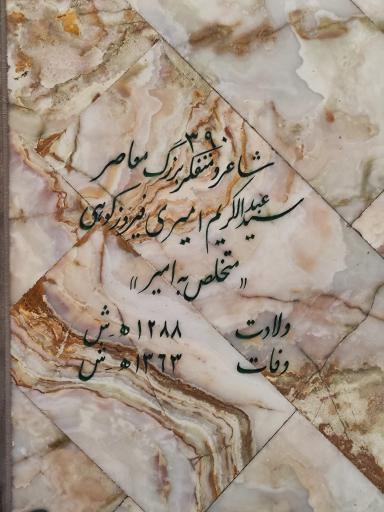 ۳۹۰
شاعر و متفکر بزرگ معاصر
سید عبدالکریم امیری فیروزکوهی
«متخلص به امیر»
ولادت ۱۲۸۸ ه‍.ش
وفات ۱۳۶۳ ه‍.ش